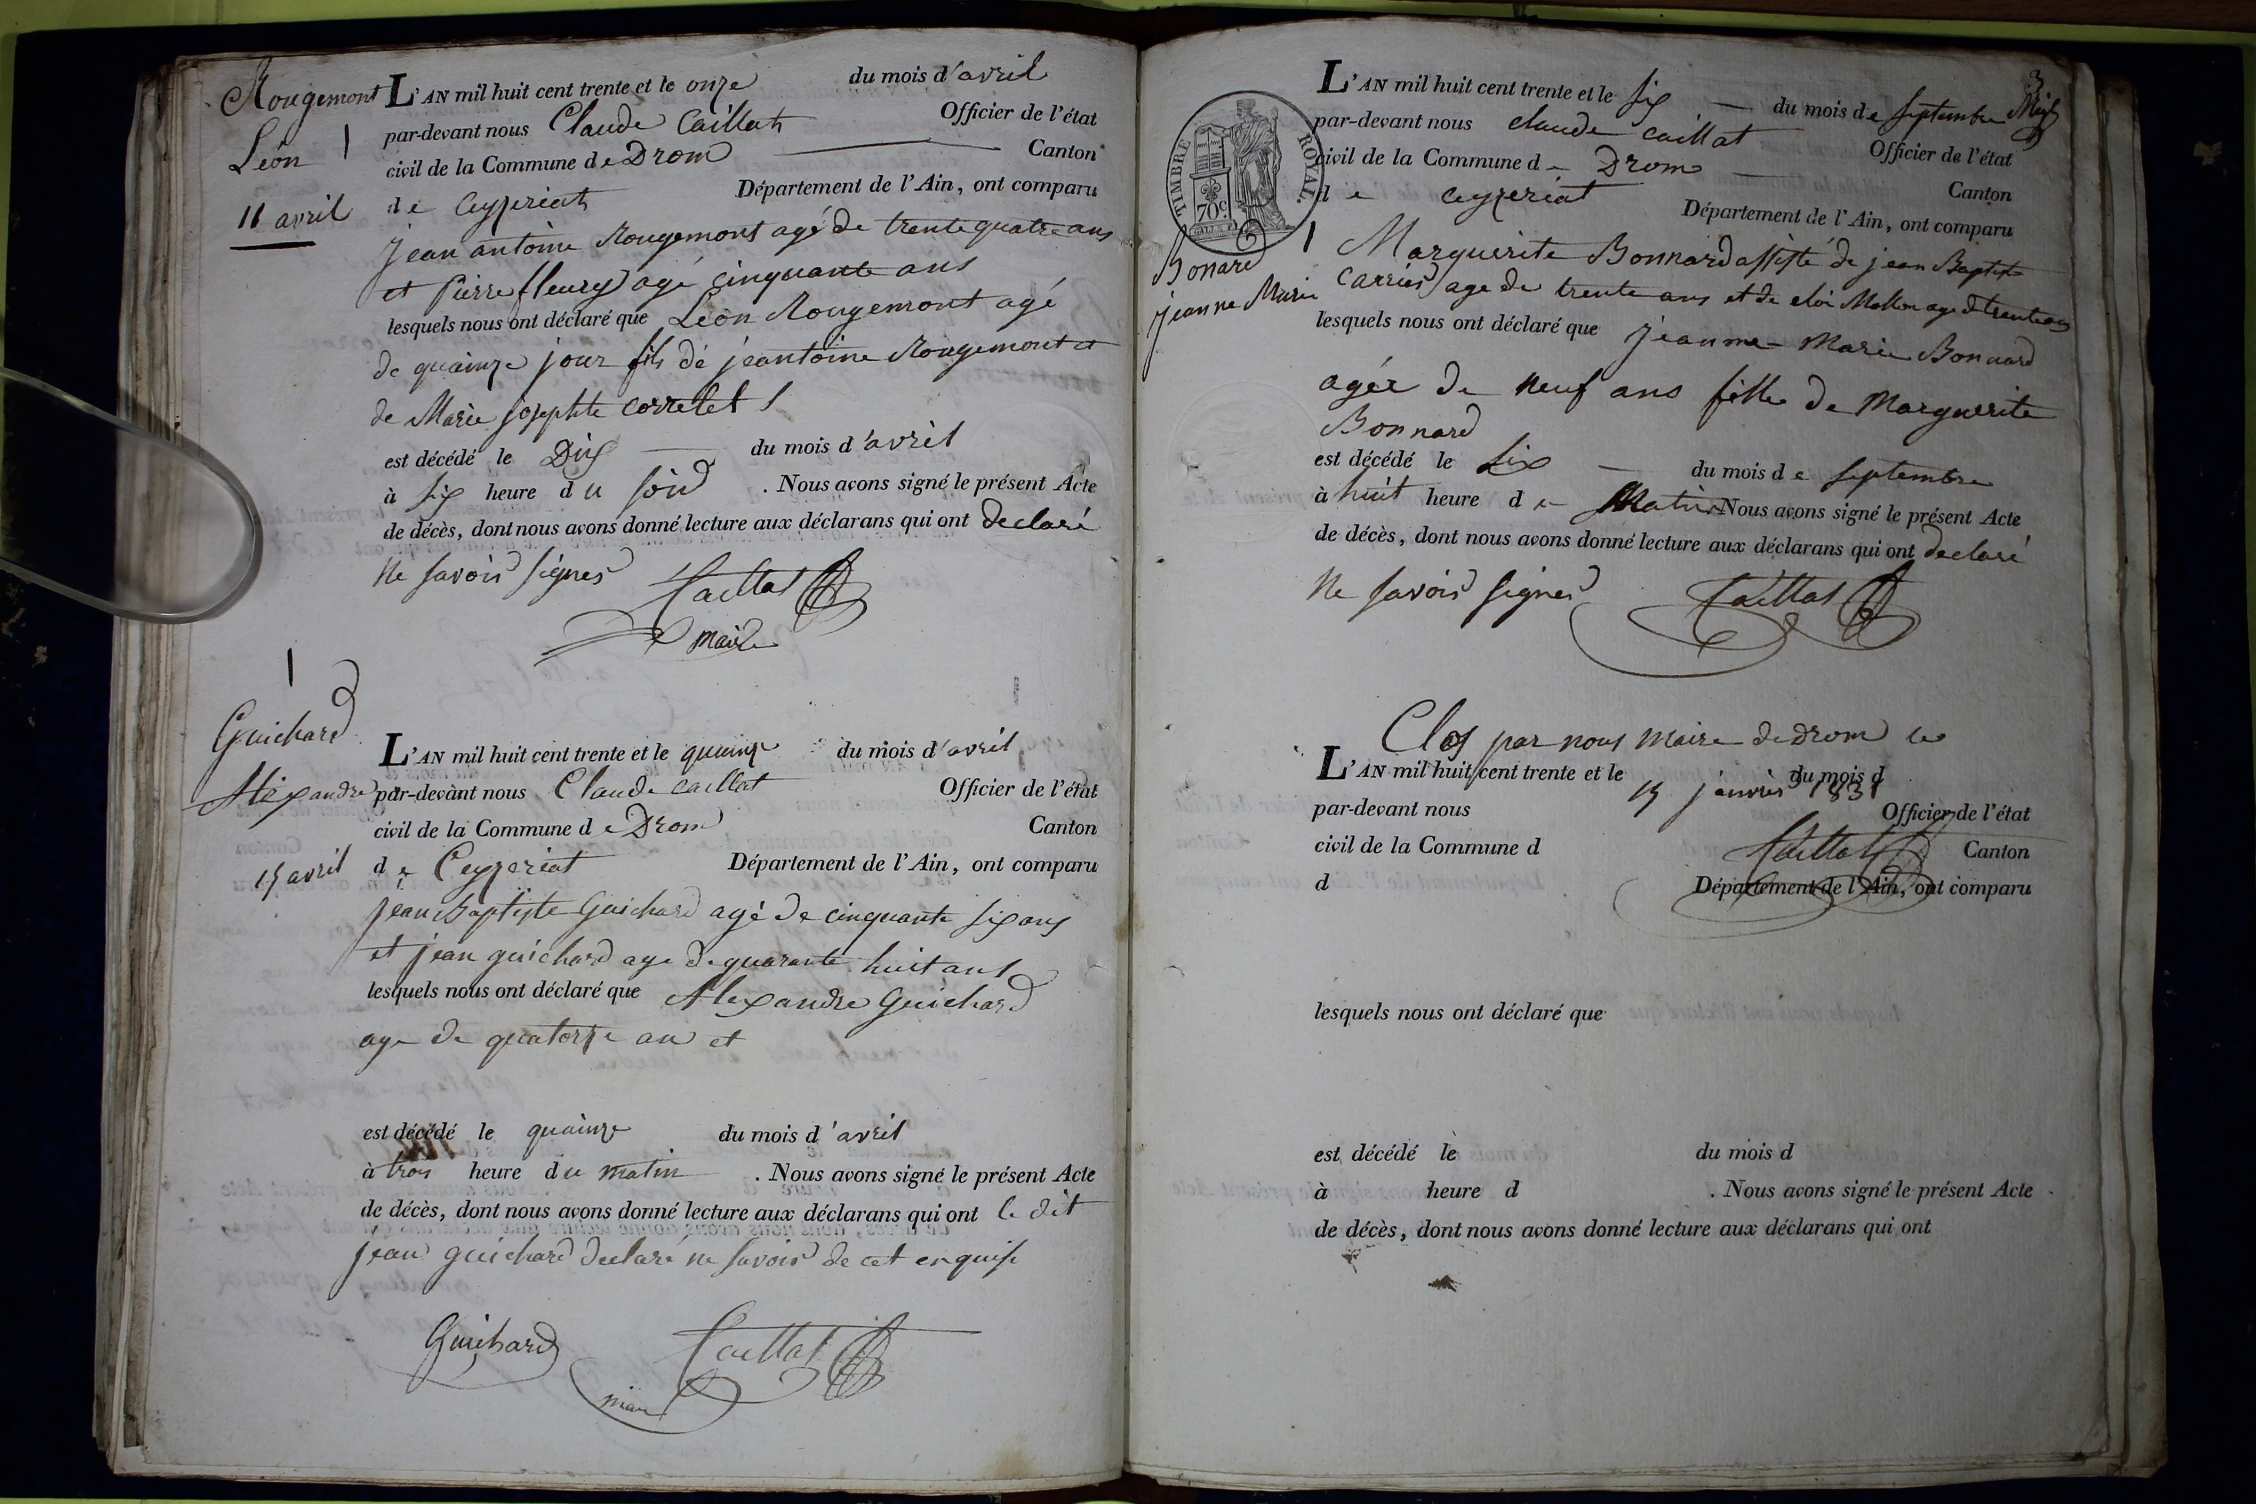 Rougemont
Léon
11 avril
L'AN mil huit cent trente et le onze du mois d'avril
par-devant nous Claude Caillat Officier de l'état
civil de la Commune de Drom Canton
de Ceyzeriat Département de l'Ain, ont comparu
jean antoine Rougemont agé de trente quatre ans
et Pierre fleury agé cinquante ans
lesquels nous ont déclaré que Léon Rougemont agé
de quainze jour fils de jeantoine Rougemont et
de Marie josephte corretet
est décédé le Dix du mois d'avril
à six heure du soir . Nous avons signé le présent Acte
de décès, dont nous avons donné lecture aux déclarans qui ont declaré
ne savoir signer
Caillat
maire
Guichard
Alexandre
15 avril
L'AN mil huit cent trente et le quainze du mois d'avril
par-devant nous Claude Caillat Officier de l'état
civil de la Commune de Drom Canton
de Ceyzeriat Département de l'Ain, ont comparu
jean Baptiste Guichard agé de cinquante six ans
et jean guichard age de quarante huit ans
lesquels nous ont déclaré que Alexandre Guichard
age de quatorze an et
est décédé le quainze du mois d'avril
à trois heure du matin . Nous avons signé le présent Acte
de décès, dont nous avons donné lecture aux déclarans qui ont le dit
jean guichard declaré ne savoir de cet enquise
Guichard
Caillat
maire
3
TIMBRE ROYAL.
70c
Bonard
jeanne Marie
L'AN mil huit cent trente et le six du mois de septembre
par-devant nous claude caillat Officier de l'état
civil de la Commune de Drom Canton
de ceyzeriat Département de l'Ain, ont comparu
Marguerite Bonnard assisté de jean Baptiste
Carrier age de trente ans et de eloi age de trente ans
lesquels nous ont déclaré que jeanne Marie Bonnard
agée de neuf ans fille de Marguerite
Bonnard
est décédé le six du mois de septembre
à huit heure de Matin Nous avons signé le présent Acte
de décès, dont nous avons donné lecture aux déclarans qui ont declaré
ne savoir signer
Caillat
Clos par nous maire de drom le
15 janvier 1831
Caillat
L'AN mil huit cent trente et le du mois d
par-devant nous Officier de l'état
civil de la Commune d Canton
d Département de l'Ain, ont comparu
lesquels nous ont déclaré que
est décédé le du mois d
à heure d . Nous avons signé le présent Acte
de décès, dont nous avons donné lecture aux déclarans qui ont